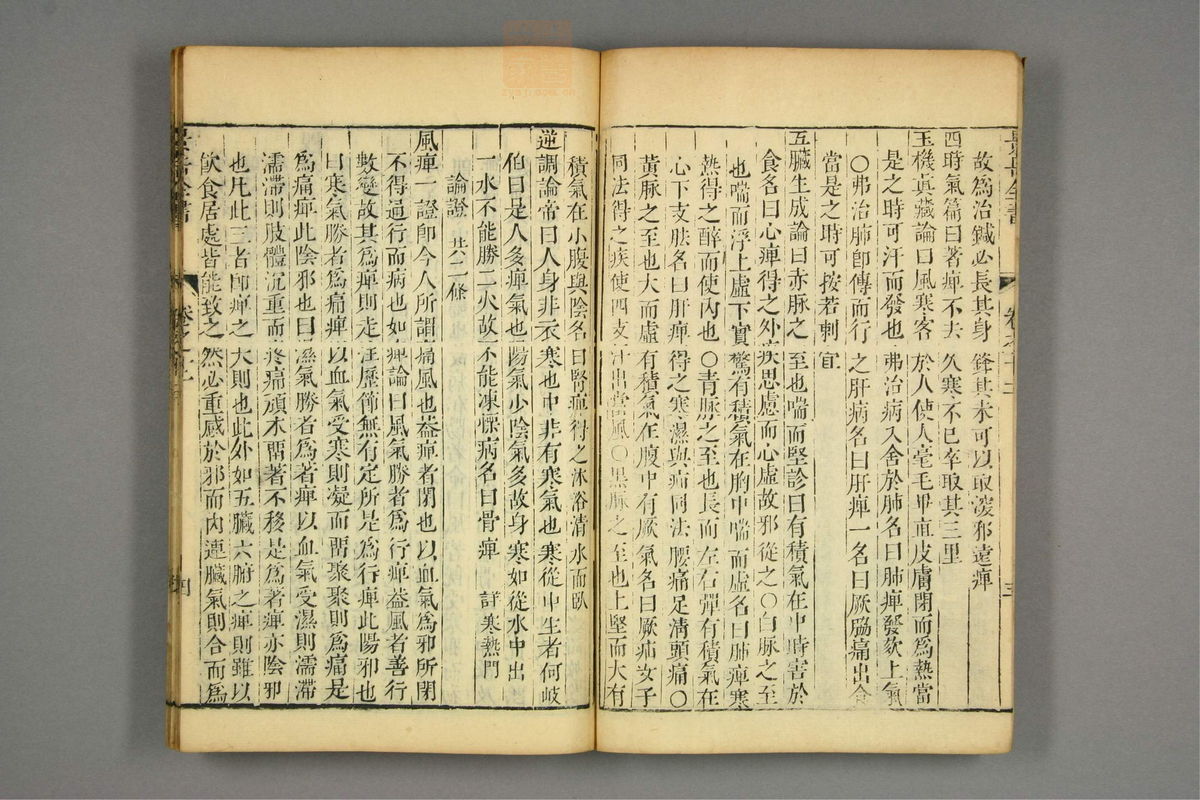 故爲治鍼必長其身鋒其末可以取深邪遠痺
四時氣篇曰著痺不去久寒不已卒取其三里
玉機眞藏論曰風寒客於人使人毫毛畢直皮膚閉而爲熱當
是之時可汗而發也弗治病入舍於肺名曰肺痺發欬上氣
○弗治肺卽傳而行之肝病名曰肝痺一名曰厥脇痛出食
當是之時可按若刺宜
五臟生成論曰赤脉之至也喘而堅診曰有積氣在中時害於
食名曰心痺得之外疾思慮而心虛故邪從之○白脉之至
也喘而浮上虛下實驚有積氣在胸中喘而虛名曰肺痺寒
熱得之醉而使內也○青脉之至也長而左右彈有積氣在
心下支胠名曰肝痺得之寒濕與疝同法腰痛足淸頭痛○
黃脉之至也大而虛有積氣在腹中有厥氣名曰厥疝女子
同法得之疾使四支汗出當風○黑脉之至也上堅而大有
積氣在小腹與陰名曰腎痺得之沐浴清水而臥
逆調論帝曰人身非衣寒也中非有寒氣也寒從中生者何岐
伯曰是人多痺氣也陽氣少陰氣多故身寒如從水中出
一水不能勝二火故不能凍慄病名曰骨痺 詳寒熱門
論證 共二條
風痺一證卽今人所謂痛風也葢痺者閉也以血氣爲邪所閉
不得通行而病也如痺論曰風氣勝者爲行痺葢風者善行
數變故其爲痺則走注歷節無有定所是爲行痺此陽邪也
曰寒氣勝者爲痛痺以血氣受寒則凝而留聚聚則爲痛是
爲痛痺此陰邪也曰濕氣勝者爲著痺以血氣受濕則濡滯
濡滯則肢體沉重而疼痛頑木留著不移是爲著痺亦陰邪
也凡此三者卽痺之大則也此外如五臟六腑之痺則雖以
飮食居處皆能致之然必重感於邪而內連臟氣則合而爲